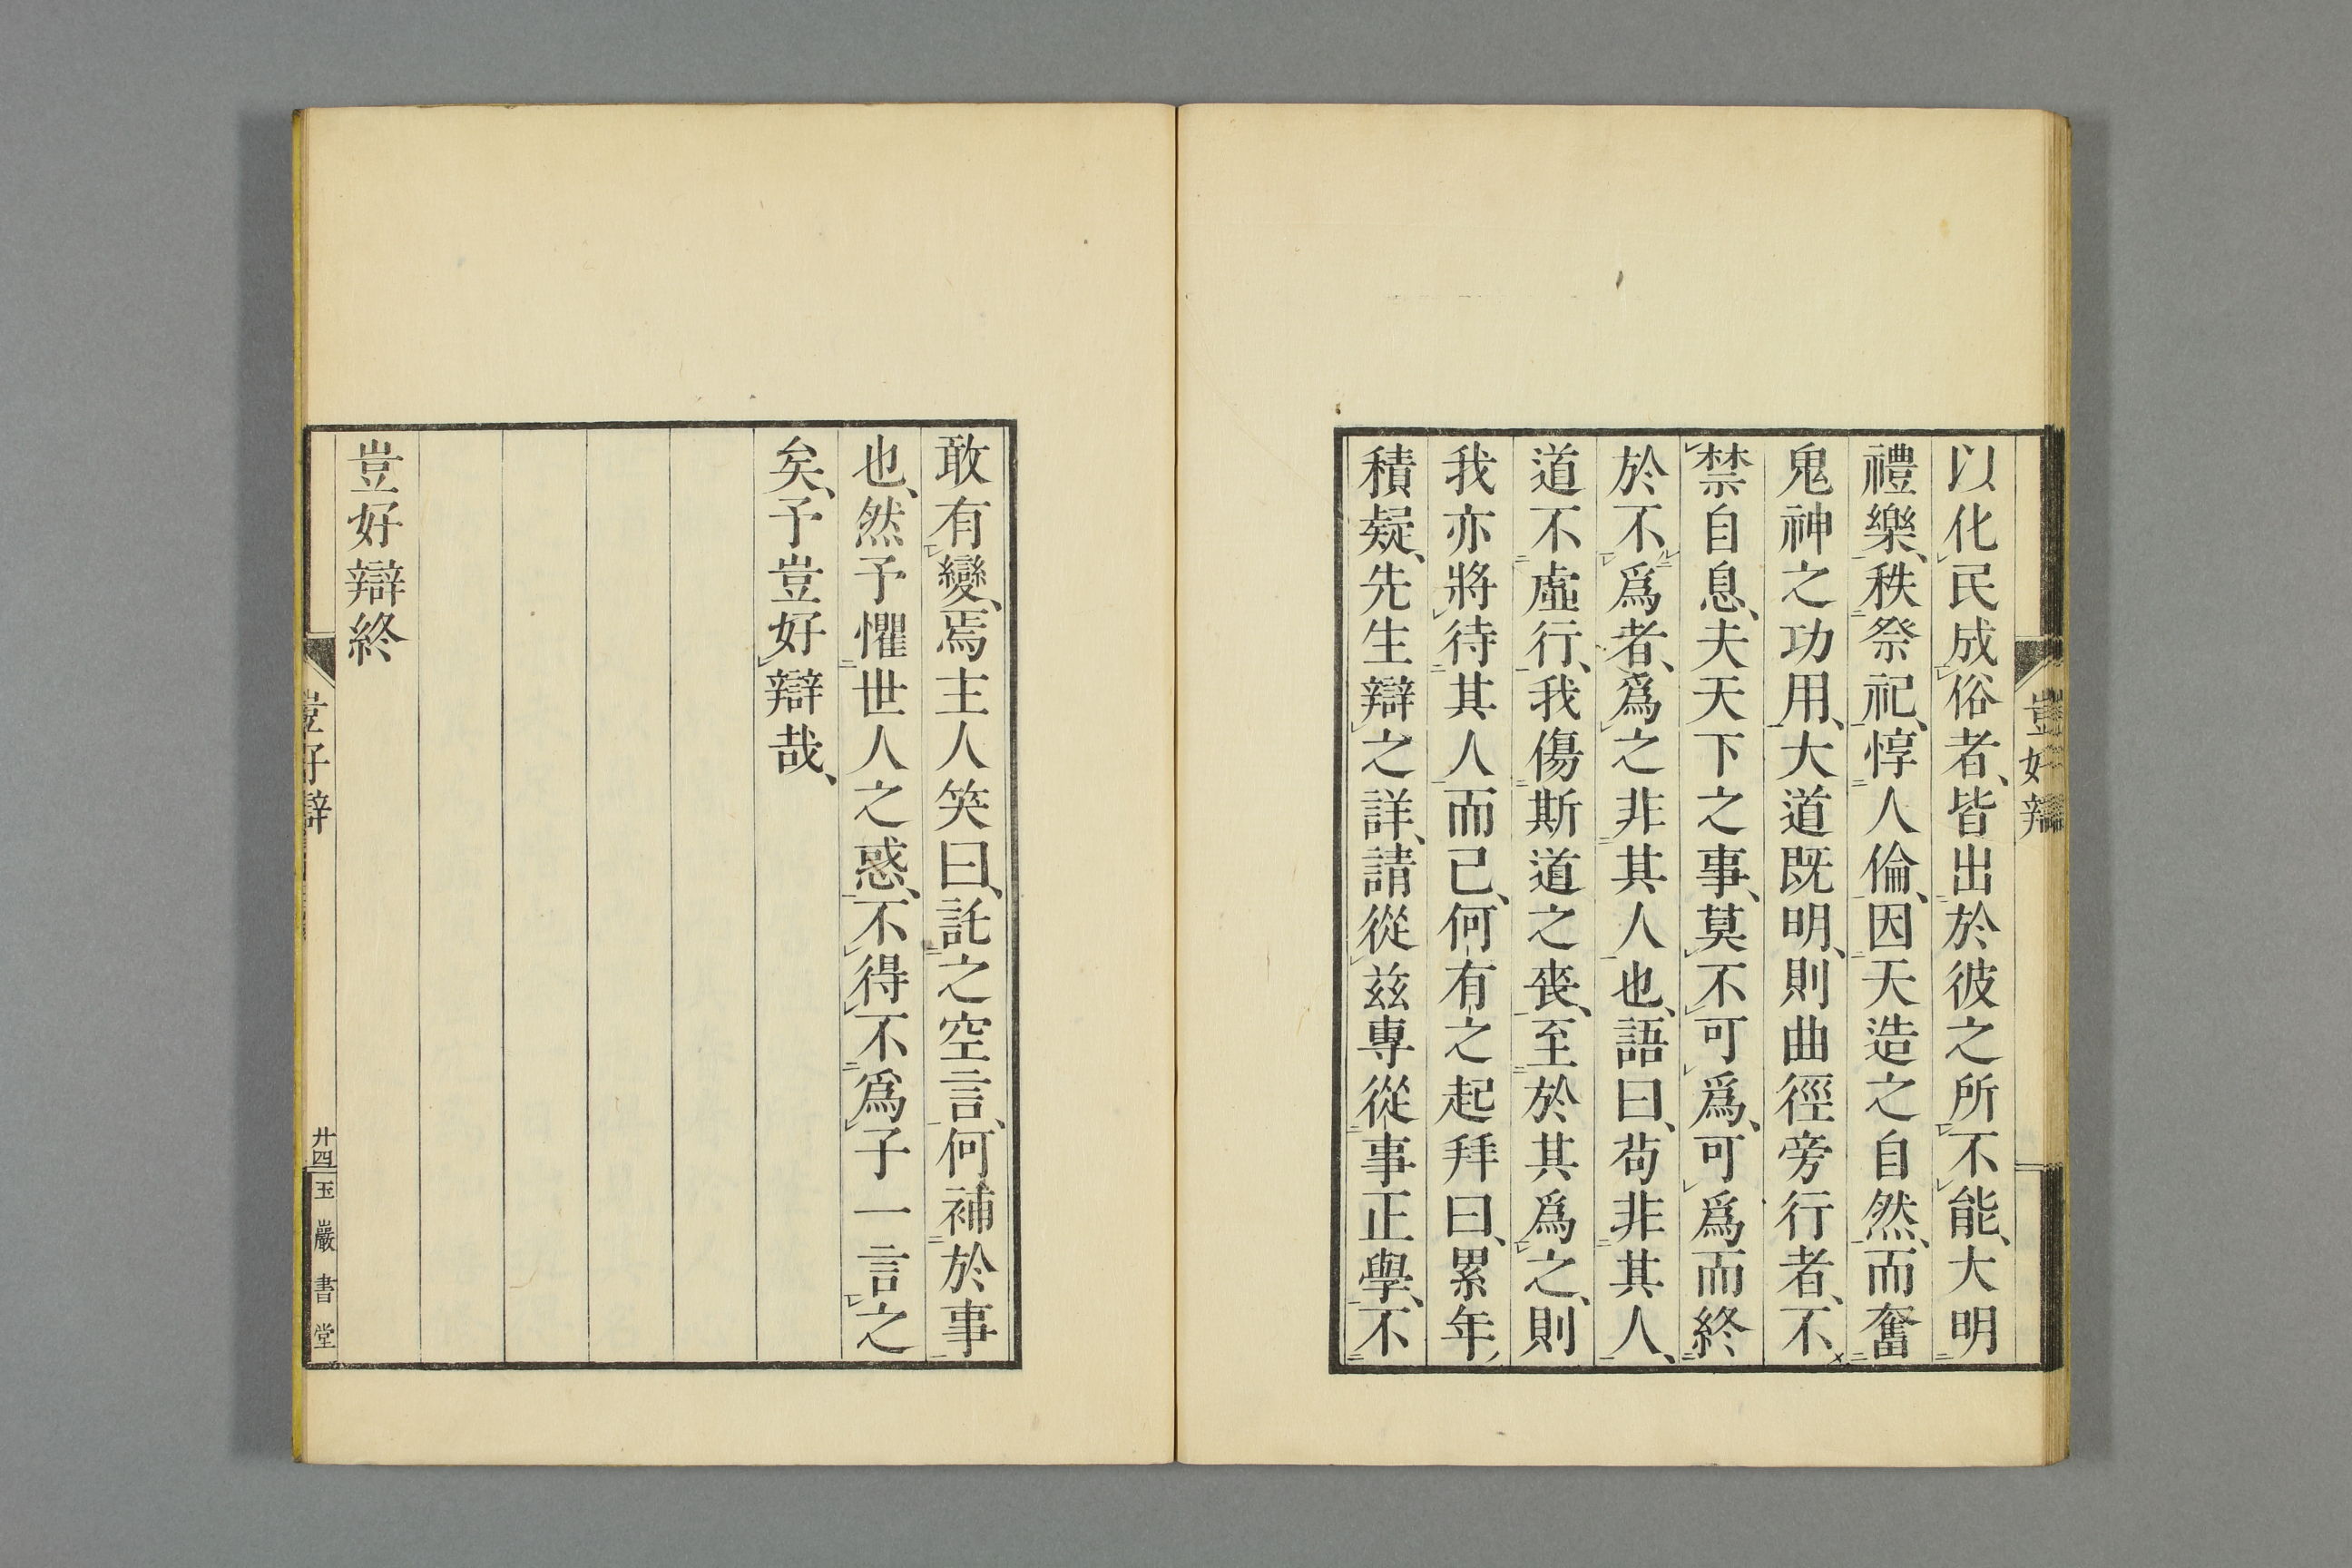 以化民成俗者、皆出於彼之所不能、大明
禮樂、秩祭祀、惇人倫、因天造之自然、而奮
鬼神之功用、大道既明、則曲徑旁行者、不
禁自息、夫天下之事、莫不可爲、可爲而終
於不爲者、爲之非其人也、語曰、苟非其人、
道不虛行、我傷斯道之喪、至於其爲之、則
我亦將待其人而已、何有之起拜曰、累年
積疑、先生辯之詳、請從茲專從事正學、不
豈好辯
敢有變焉、主人笑曰、託之空言、何補於事
也、然予懼世人之惑、不得不爲子一言之
矣、予豈好辯哉、
豈好辯終
豈好辯
廿四
玉巖書堂